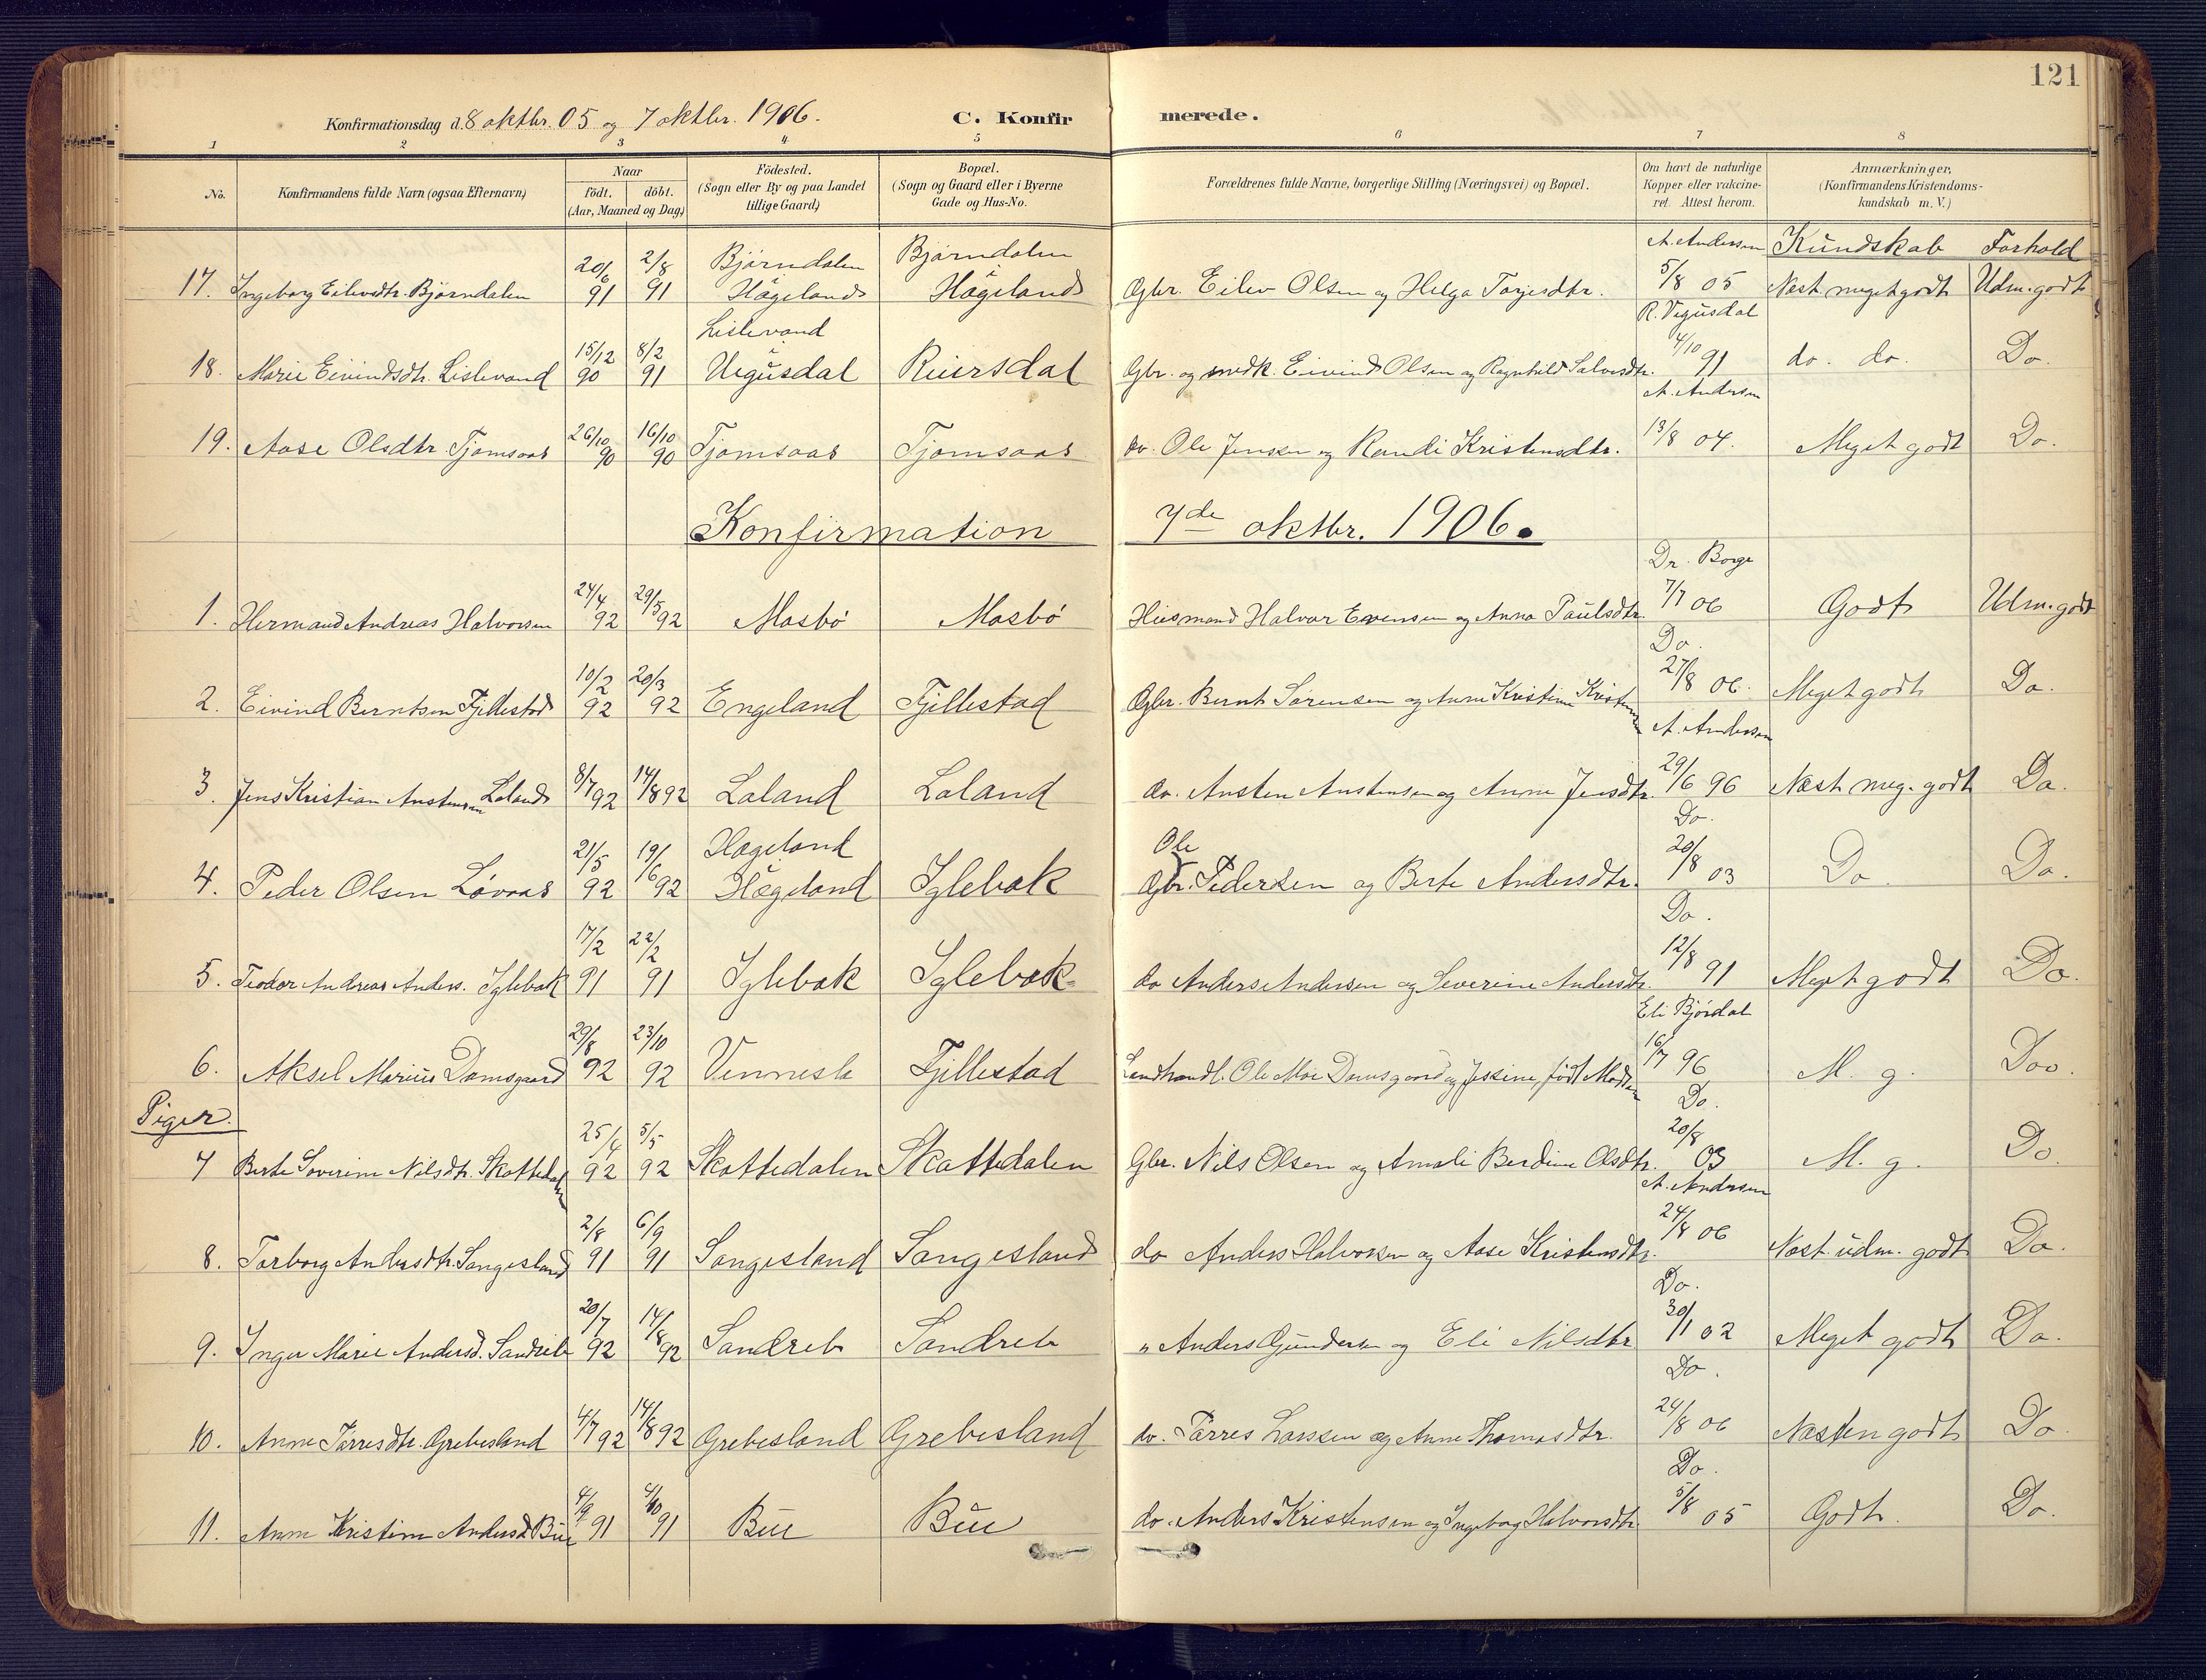 121
Konfirmationsdag d. 8 oktbr. 05 og 7 oktbr. 1906. C. Konfirmerede.
1 2 3 4 5 6 7 8
No. Konfirmandens fulde Navn (ogsaa Efternavn) Naar födt. döbt. (Aar, Maaned og Dag) Födested. (Sogn eller By og paa Landet tillige Gaard) Bopæl. (Sogn og Gaard eller i Byerne Gade og Hus-No. Forældrenes fulde Navne, borgerlige Stilling (Næringsvei) og Bopæl. Om havt de naturlige Kopper eller vakcineret. Attest herom. Anmærkninger, (Konfirmandens Kristendomskundskab m. V.)
A. Andersen Kundskab Forhold
17. Ingeborg Eilevsdtr. Bjørndalen 20/6 91 2/8 91 Bjørndalen Hægeland Bjørndalen Hægeland Gbr. Eilev Olsen og Helga Torjesdtr. 5/8 05 Næst meget godt Udm. godt
R. Vegusdal
18. Marie Eivindsdtr. Lislevand 15/12 90 8/2 91 Lislevand Vegusdal Reiersdal Gbr. og snedk. Eivind Olsen og Ragnhild Salvesdtr. 4/10 91 do. do. Do.
A. Andersen
19. Aase Olsdtr. Tjomsaas 26/10 90 16/10 90 Tjomsaas Tjomsaas do. Ole Jensen og Randi Kristensdtr. 13/8 04. Meget godt Do.
Konfirmation 7de oktbr. 1906.
Dr. Borge
1. Hermand Andreas Halvorsen 24/4 92 29/5 92 Mosbö Mosbö Husmand Halvor Evensen og Anna Paulsdtr. 7/7 06 Godt Udm. godt
Do.
2. Eivind Berntsen Fjillestad 10/2 92 20/3 92 Engeland Fjillestad Gbr. Bernt Sørensen og Anne Kristine 27/8 06. Meget godt Do.
A. Andersen
3. Jens Kristian Austensen Laland 8/7 92 14/8 92 Laland Laland do. Austen Austensen og Anne Jensdtr. 29/6 96 Næst meg. godt Do.
Do.
4. Peder Olsen Løvaas 21/5 92 19/6 92 Hægeland Hægeland Iglebæk Gbr. Ole Pedersen og Berte Andersdtr. 20/8 03 Do Do.
Do.
5. Teodor Andreas Anders. Iglebæk 17/2 91 22/2 91 Iglebæk Iglebæk do Anders Andersen og Severine Andersdtr. 12/8 91 Meget godt Do.
Eli Bjørdal
6. Aksel Marius Damsgaard 29/8 92 23/10 92 Vennesla Fjillestad Landhandl. Ole Moe Damsgaard og Jessine, født 16/7 96 M. g. Do.
Piger. Do.
7 Berte Soverine Nilsdtr. Skottedalen 25/4 92 5/5 92 Skottedalen Skottedalen Gbr. Nils Olsen og Amali Berdine Olsdtr. 20/8 03 M. g. Do.
A. Andersen
8. Torborg Andersdtr. Sangesland 2/8 91 6/9 91 Sangesland Sangesland do Anders Halvorsen og Aase Kristensdtr. 24/8 06 Næst udm. godt Do.
Do.
9. Inger Marie Andersd. Sandrib 20/7 92 14/8 92 Sandreb Sandreb " Anders Gundersen og Eli Nilsdtr 30/1 02 Meget godt Do.
Do.
10. Anne Tørresdtr. Grebesland 4/7 92 14/8 92 Grebesland Grebesland do. Tørres Larssen og Anne Thomasdtr. 24/8 06 Næsten godt Do
Do.
11. Anne Kristine Andersd. Bue 4/9 91 4/10 91 Bue Bue do. Anders Kristensen og Ingeborg Halvorsdtr. 5/8 05 Godt. Do.